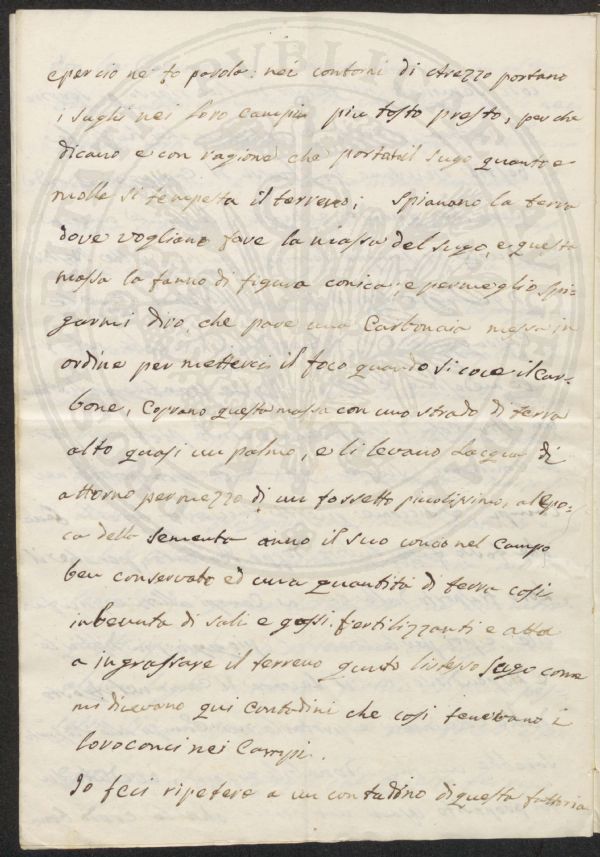 e percio ne fo parola: nei contorni di Arezzo portano
i sughi nei loro campi piu tosto presto, perche
dicano e con ragione che portar il sugo quanto e
molle si tempesta il terreno; Spianano la terra
dove vogliano fare la massa del sugo, e questa
massa la fanno di figura conica; e per meglio spi-
garmi diro, che pare una Carbonaia messa in
ordine per metterci il foco quando si coce il Car-
bone, Coprano questa massa con uno strado di terra
alto quasi un palmo, e li levano Lacqua di
attorno per mezzo di un fossetto piccolissimo, al epo-
ca della sementa anno il suo concio nel Campo
ben conservato ed una quantità di terra cosi
inbevuta di sali e gassi fertilizzanti e atta
a ingrassare il terreno quato listesso Sugo come
mi dicevano qui Contadini che cosi tenevano i
loro conci nei Campi.
Io feci ripetere a un contadino di questa fattoria